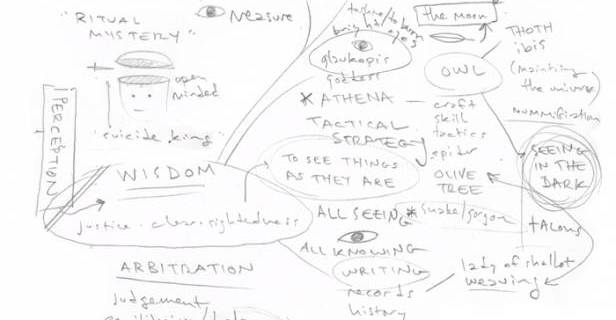 "RITUAL
MYSTERY"
open
minded
"suicide king"
PERCEPTION
WISDOM
justice · clear-sightedness
ARBITRATION
judgement
measure
bright eyes
glaukopis
goddess
* ATHENA —
TACTICAL
STRATEGY
TO SEE THINGS
AS THEY ARE
ALL SEEING
ALL KNOWING
WRITING
records
history
the moon
OWL
craft
skill
tactics
spider
OLIVE
TREE
* snake/gorgon
lady of shallot
weaving
THOTH
ibis
(maintaining
the universe
mummification
SEEING
IN THE
DARK
talons